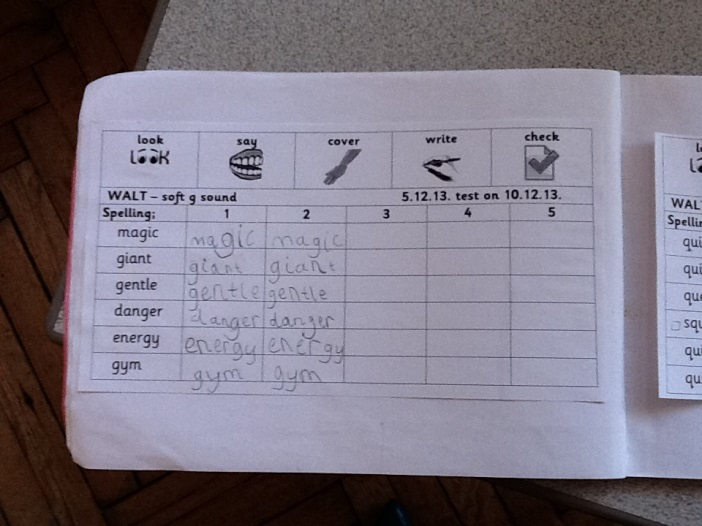 look say cover write check
LOOK
WALT – soft g sound 5.12.13. test on 10.12.13.
Spelling; 1 2 3 4 5
magic magic magic
giant giant giant
gentle gentle gentle
danger danger danger
energy energy energy
gym gym gym
WAL
Spellin
qui
qui
que
squ
qui
qu